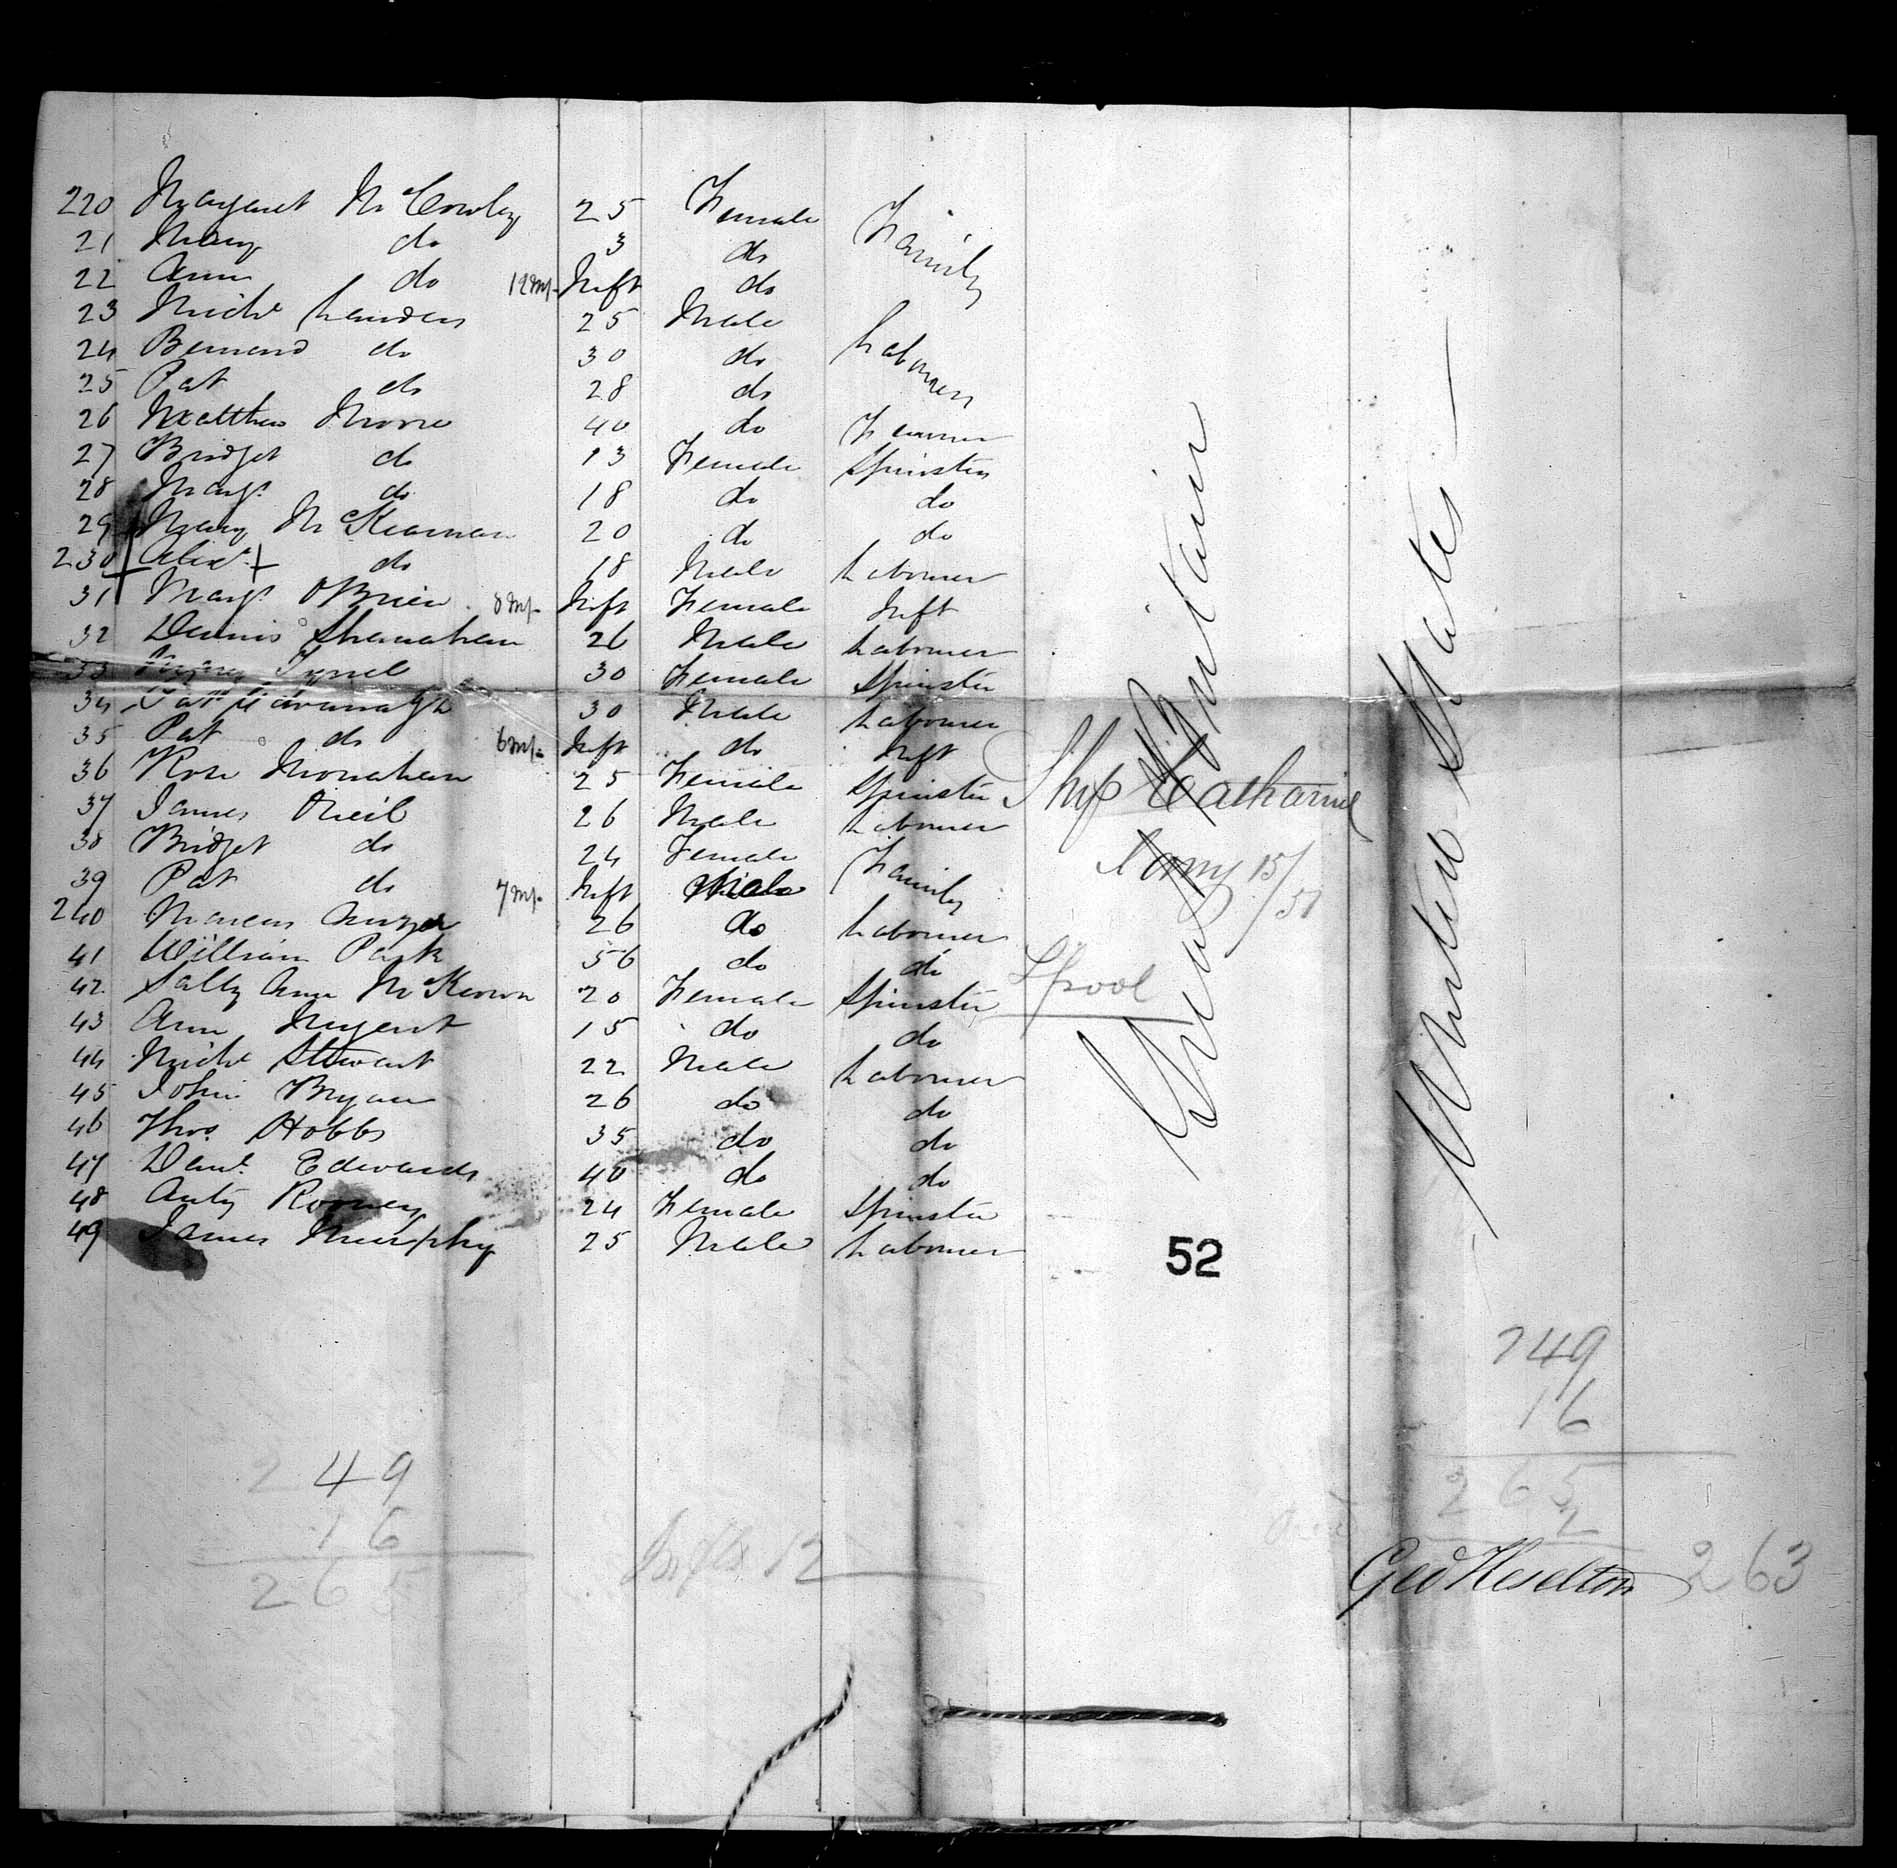 220 Margaret McCowley 25 Female Family
21 Mary do 3 do
22 Ann do 12 Ms. Inft do
23 Michl Landers 25 Male Labourers
24 Bernard do 30 do
25 Pat do 28 do
26 Matthew Moore 40 do Farmer
27 Bridget do 13 Female Spinster
28 Margt do 18 do do
29 Mary McKiernan 20 do do
230 Alexr do 18 Male Labourer
31 Margt OBrien 8 Ms. Inft Female Inft
32 Dennis Shanahan 26 Male Labourer
33 Tyrrel 30 Female Spinster
34 Pat Kavanagh 30 Male Labourer
35 Pat do 6 Ms. Inft do Inft
36 Rose Monahan 25 Female Spinster
37 James ONeil 26 Male Labourer
38 Bridget do 24 Female Family
39 Pat do 7 Ms. Inft Male
240 Marcus 26 do Labourer
41 William Park 56 do do
42 Sally Ann McKeown 20 Female Spinster
43 Ann Nugent 15 do do
44 Michl Stewart 22 Male Labourer
45 John Bryan 26 do do
46 Thos Hobbs 35 do do
47 Danl Edwards 40 do do
48 Anty Rooney 24 Female Spinster
49 James Murphy 25 Male Labourer
Great Britain
United States
Ship Catharine
Jany 15/51
Lpool
52
249
16
265
Infts 12
249
16
265
2
263
Geo Heselton